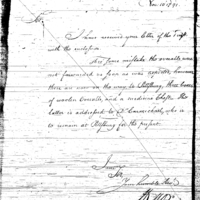 Nov 10th 91
Sir,
I have received your letter of the
with the inclosure
By some mistake the
not forwarded so soon as was expected, however
they are now on the way to Pittsburg, three boxes
of and a medicine Chest. This
letter is addressed to Carmichael, who is
to remain at Pittsburg for the present.
I am
Sir
Your humble Serv